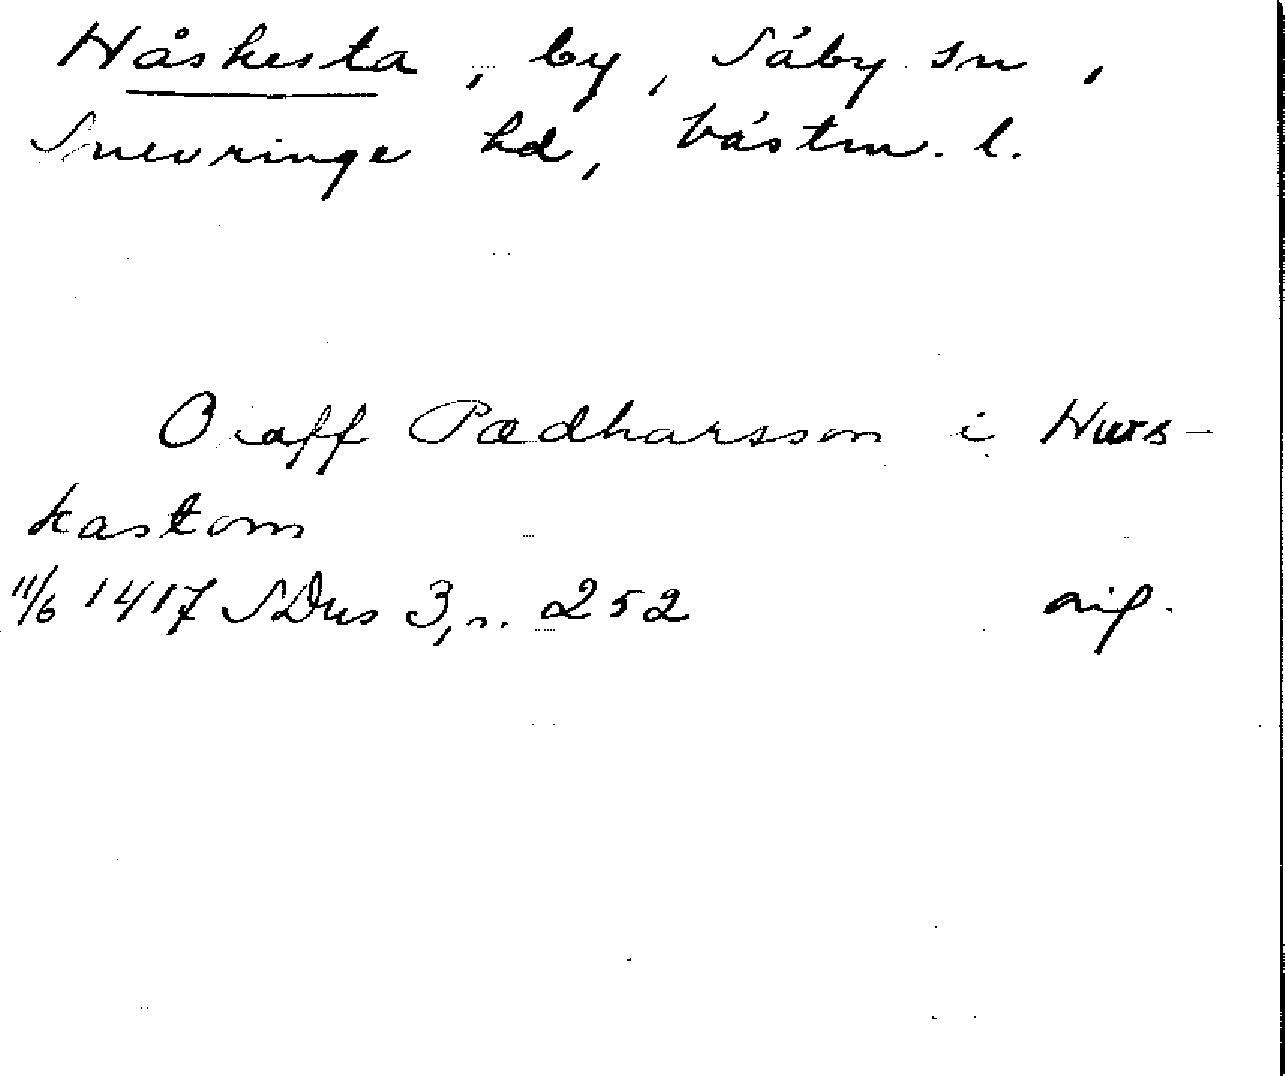 Håskesta, by, Säby sn,
Snevringe hd, Västm. l.
Olaff Pædharsson i Hws-
kastom
11/6 1417 SDns 3, s. 252 orig.